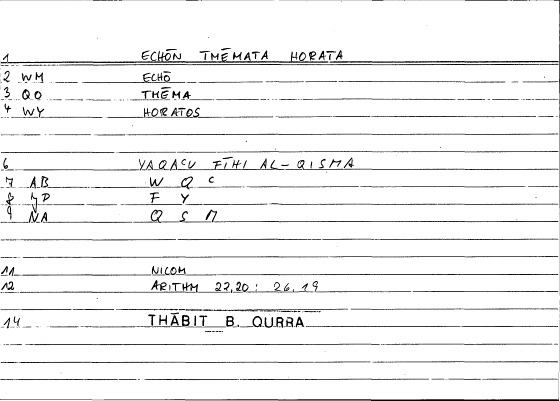 1 ECHŌN TMĒMATA HORATA
2 WM ECHŌ
3 QO TMĒMA
4 WY HORATOS
6 YAQACU FĪHI AL-QISMA
7 AB W Q C
8 JP F Y
9 NA Q S M
11 NICOM
12 ARITHM 22,20 : 26,19
14 THĀBIT B. QURRA